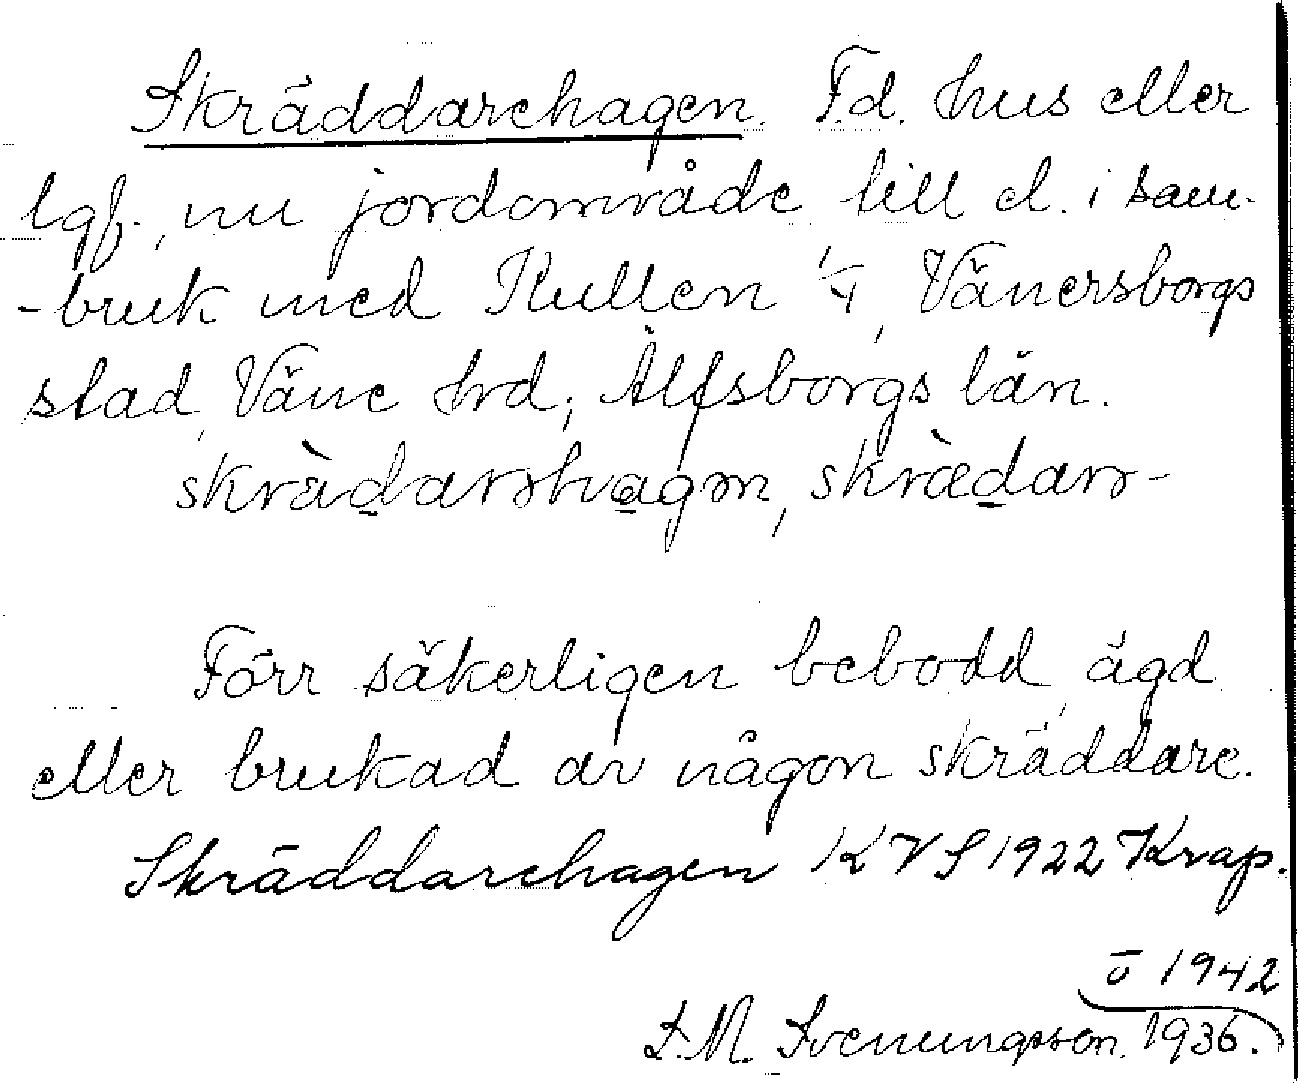 Skräddarehagen. F.d. hus eller
lgh., nu jordområde till d. i sam-
-bruk med Kullen 1/1, Vänersborgs
stad, Väne hrd, Älfsborgs län.
skràdarəhagən, skrædarə-
Förr säkerligen bebodd, ägd
eller brukad av någon skräddare.
Skräddarehagen KVS 1922 Krap.
ö 1942
S. M. Svenungsson. 1936.